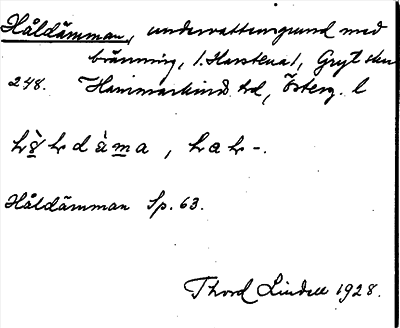 Håldämman, undervattensgrund med
bränning, l. Harstena l, Gryt skn
248. Hammarkinds hd, Österg. l
Håldämman Sp. 63.
Thord Lindell 1928.